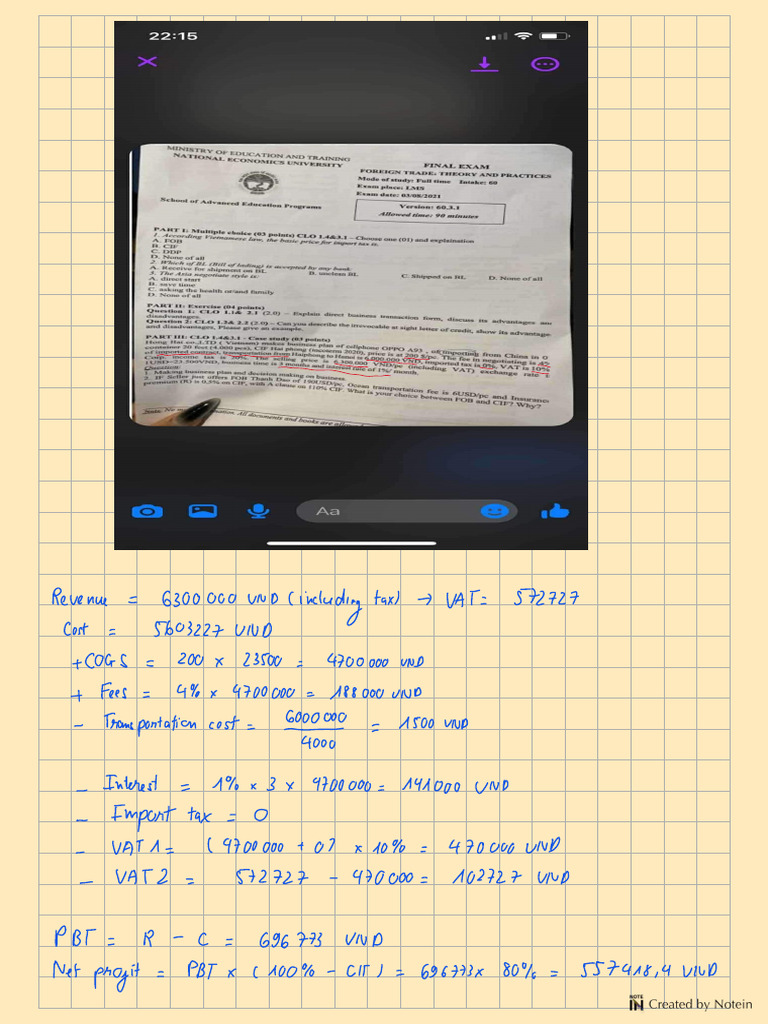 22:15
MINISTRY OF EDUCATION AND TRAINING
NATIONAL ECONOMICS UNIVERSITY
School of Advanced Education Programs
FINAL EXAM
FOREIGN TRADE: THEORY AND PRACTICES
Mode of study: Full time Intake: 60
Exam place: LMS
Exam date: 03/08/2021
Version: 60.3.1
Allowed time: 90 minutes
PART I: Multiple choice (03 points) CLO 1.4&3.1 – Choose one (01) and explaination
1. According Vietnamese law, the basic price for import tax is.
A. FOB
B. CIF
C. DDP
D. None of all
2. Which of BL (Bill of lading) is accepted by any bank.
A. Receive for shipment on BL B. unclean BL C. Shipped on BL D. None of all
3. The Asia negotiate style is:
A. direct start
B. save time
C. asking the health or/and family
D. None of all
PART II: Exercise (04 points)
Question 1: CLO 1.1& 2.1 (2.0) – Explain direct business transaction form, discuss its advantages and
disadvantages.
Question 2: CLO 1.2& 2.2 (2.0) – Can you describe the irrevocable at sight letter of credit, show its advantage
and disadvantages, Please give an example.
PART III: CLO 1.4&3.1 - Case study (03 points)
Hong Hai co.,LTD (Vietnam) makes business plan of cellphone OPPO A93, importing from China in 0
container 20 feet (4.000 pcs), CIF Hai phong (incoterm 2020), price is at 200 $/pc. The fee in negotiating is 4%
of imported contract, transportation from Haiphong to Hanoi is 6.000.000 VND, imported tax is 0%, VAT is 10%
Corp. income tax is 20%. The selling price is 6.300.000 VND/pc (including VAT) exchange rate 1
1USD=23.500VND, business time is 3 months and interest rate of 1%/ month.
Question:
1. Making business plan and decision making on business.
2. IF Seller just offers FOB Thanh Dao of 190USD/pc, Ocean transportation fee is 6USD/pc and Insurance
premium (R) is 0,5% on CIF, with A clause on 110% CIF. What is your choice between FOB and CIF? Why?
All documents and books are
Aa
Revenue = 6300 000 VND (including tax) → VAT = 572727
Cost = 5603227 VND
+ COGS = 200 × 23500 = 4700 000 VND
+ Fees = 4% × 4700 000 = 188 000 VND
- Transportation cost = 6000 000 / 4000 = 1500 VND
- Interest = 1% × 3 × 4700 000 = 141000 VND
- Import tax = 0
- VAT 1 = (4700 000 + 0) × 10% = 470 000 VND
- VAT 2 = 572727 - 470 000 = 102727 VND
PBT = R - C = 696 773 VND
Net profit = PBT × (100% - CIT) = 696773 × 80% = 557418,4 VND
NOTE IN Created by Notein